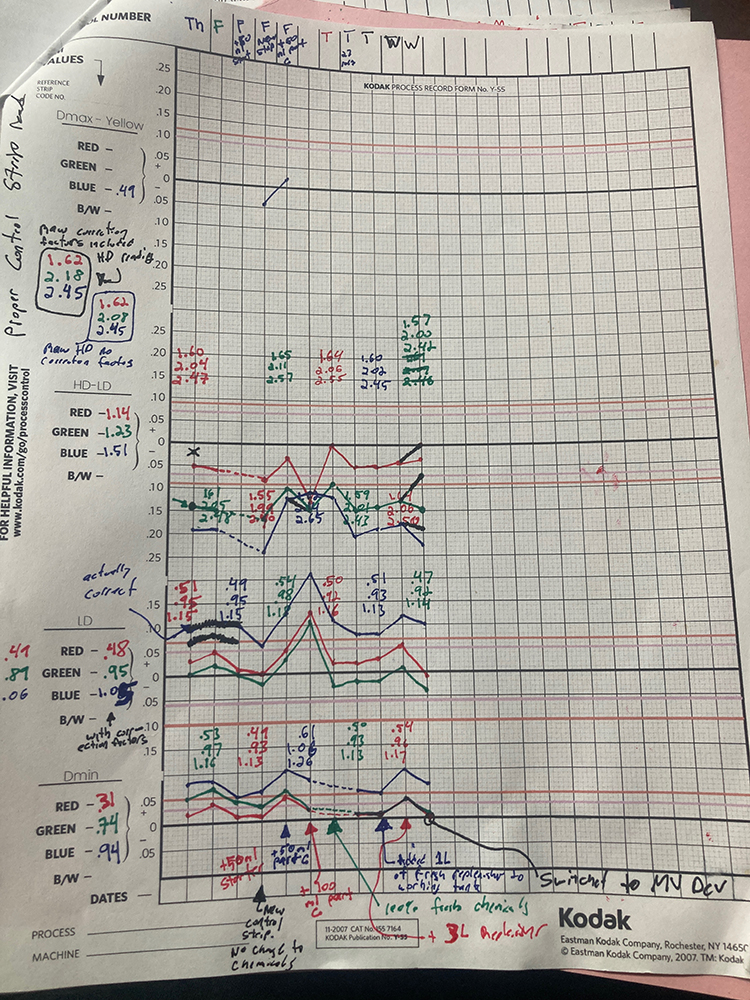 OL NUMBER
Th F F F F T T T T W W
+50 ml Start
New Strip
+50 ml part C
VALUES
REFERENCE
STRIP
CODE NO.
KODAK PROCESS RECORD FORM No. Y-55
Dmax - Yellow
RED -
GREEN -
BLUE - .49
B/W -
.25
.20
.15
.10
.05
+
0
-
.05
.10
.15
.20
.25
Proper Control Strip
Raw correction
factors included
HD reading
1.62
2.18
2.45
1.62
2.08
2.45
Raw HD no
correction factors
HD-LD
RED -1.14
GREEN -1.23
BLUE -1.51
B/W -
.25
.20
.15
.10
.05
+
0
-
.05
.10
.15
.20
.25
1.60
2.04
2.47
1.65
2.11
2.57
1.64
2.06
2.55
1.60
2.02
2.45
1.57
2.00
2.42
2.46
1.61
2.05
2.48
1.55
1.99
2.65
1.59
2.01
2.43
2.00
FOR HELPFUL INFORMATION, VISIT
www.kodak.com/go/processcontrol
actually
correct
.51
.95
1.15
.49
.95
1.15
.54
.98
1.18
.50
.92
1.16
.51
.93
1.13
.47
.92
1.14
LD
RED - .48
GREEN - .95
BLUE -
B/W -
.15
.10
.05
+
0
-
.05
.10
.15
.89
.06
with corr-
ection factors
.53
.97
1.16
.49
.93
1.13
.61
1.06
1.26
.50
.93
1.13
.54
.96
1.17
Dmin
RED - .31
GREEN - .74
BLUE - .94
B/W -
.05
+
0
-
.05
DATES -
+50ml
Starter
+50ml
part C
+ 100
ml part
C
Added 1L
of Fresh replenisher to
working tank
Switched to MV Dev
100% fresh chemicals
+ 3L Replenisher
New
control
strip.
No change to
chemicals
PROCESS
MACHINE
11-2007 CAT No. 155 7164
KODAK Publication No. Y-55
Kodak
Eastman Kodak Company, Rochester, NY 1465
© Eastman Kodak Company, 2007. TM: Kodak